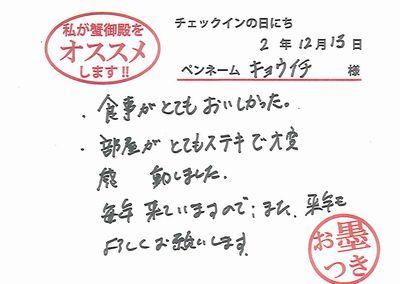 私が蟹御殿を
オススメ
します!!
チェックインの日にち
2 年 12 月 13 日
ペンネーム キョウイチ 様
・食事がとてもおいしかった。
・部屋が とてもステキで大変
感 動しました。
毎年 来ていますので; また、来年も
よろしくお願いします。
お墨
つき